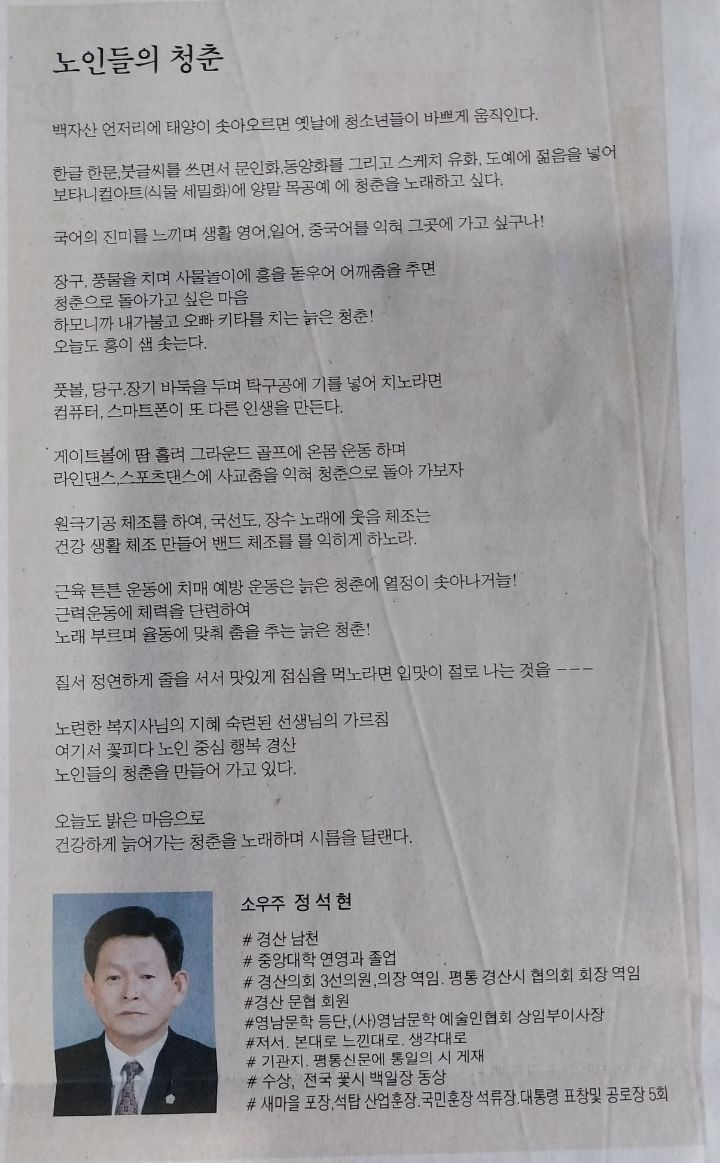 노인들의 청춘
백자산 언저리에 태양이 솟아오르면 옛날에 청소년들이 바쁘게 움직인다.
한글 한문,붓글씨를 쓰면서 문인화,동양화를 그리고 스케치 유화, 도예에 젊음을 넣어
보타니컬아트(식물 세밀화)에 양말 목공예 에 청춘을 노래하고 싶다.
국어의 진미를 느끼며 생활 영어,일어, 중국어를 익혀 그곳에 가고 싶구나!
장구, 풍물을 치며 사물놀이에 흥을 돋우어 어깨춤을 추면
청춘으로 돌아가고 싶은 마음
하모니까 내가불고 오빠 키타를 치는 늙은 청춘!
오늘도 흥이 샘 솟는다.
풋볼, 당구.장기 바둑을 두며 탁구공에 기를 넣어 치노라면
컴퓨터, 스마트폰이 또 다른 인생을 만든다.
게이트볼에 땀 흘려 그라운드 골프에 온몸 운동 하며
라인댄스,스포츠댄스에 사교춤을 익혀 청춘으로 돌아 가보자
원극기공 체조를 하여, 국선도, 장수 노래에 웃음 체조는
건강 생활 체조 만들어 밴드 체조를 를 익히게 하노라.
근육 튼튼 운동에 치매 예방 운동은 늙은 청춘에 열정이 솟아나거늘!
근력운동에 체력을 단련하여
노래 부르며 율동에 맞춰 춤을 추는 늙은 청춘!
질서 정연하게 줄을 서서 맛있게 점심을 먹노라면 입맛이 절로 나는 것을 ---
노련한 복지사님의 지혜 숙련된 선생님의 가르침
여기서 꽃피다 노인 중심 행복 경산
노인들의 청춘을 만들어 가고 있다.
오늘도 밝은 마음으로
건강하게 늙어가는 청춘을 노래하며 시름을 달랜다.
소우주 정석현
# 경산 남천
# 중앙대학 연영과 졸업
# 경산의회 3선의원,의장 역임. 평통 경산시 협의회 회장 역임
#경산 문협 회원
#영남문학 등단,(사)영남문학 예술인협회 상임부이사장
#저서. 본대로 느낀대로. 생각대로
# 기관지. 평통신문에 통일의 시 게재
# 수상, 전국 꽃시 백일장 동상
# 새마을 포장,석탑 산업훈장.국민훈장 석류장.대통령 표창및 공로장 5회